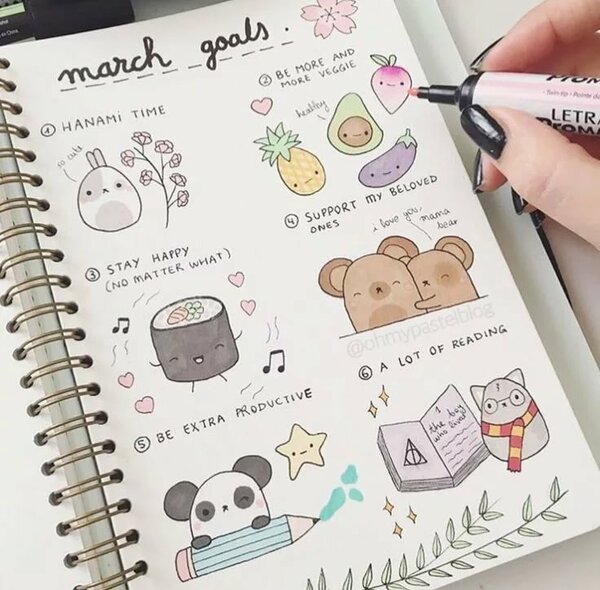 march goals.
① HANAMI TIME
so cute
② BE MORE AND
MORE VEGGIE
healthy
③ STAY HAPPY
(NO MATTER WHAT)
④ SUPPORT MY BELOVED
ONES
i love you,
mama
bear
@ohmypastelblog
⑤ BE EXTRA PRODUCTIVE
⑥ A LOT OF READING
1
the boy
who lived
LETRA